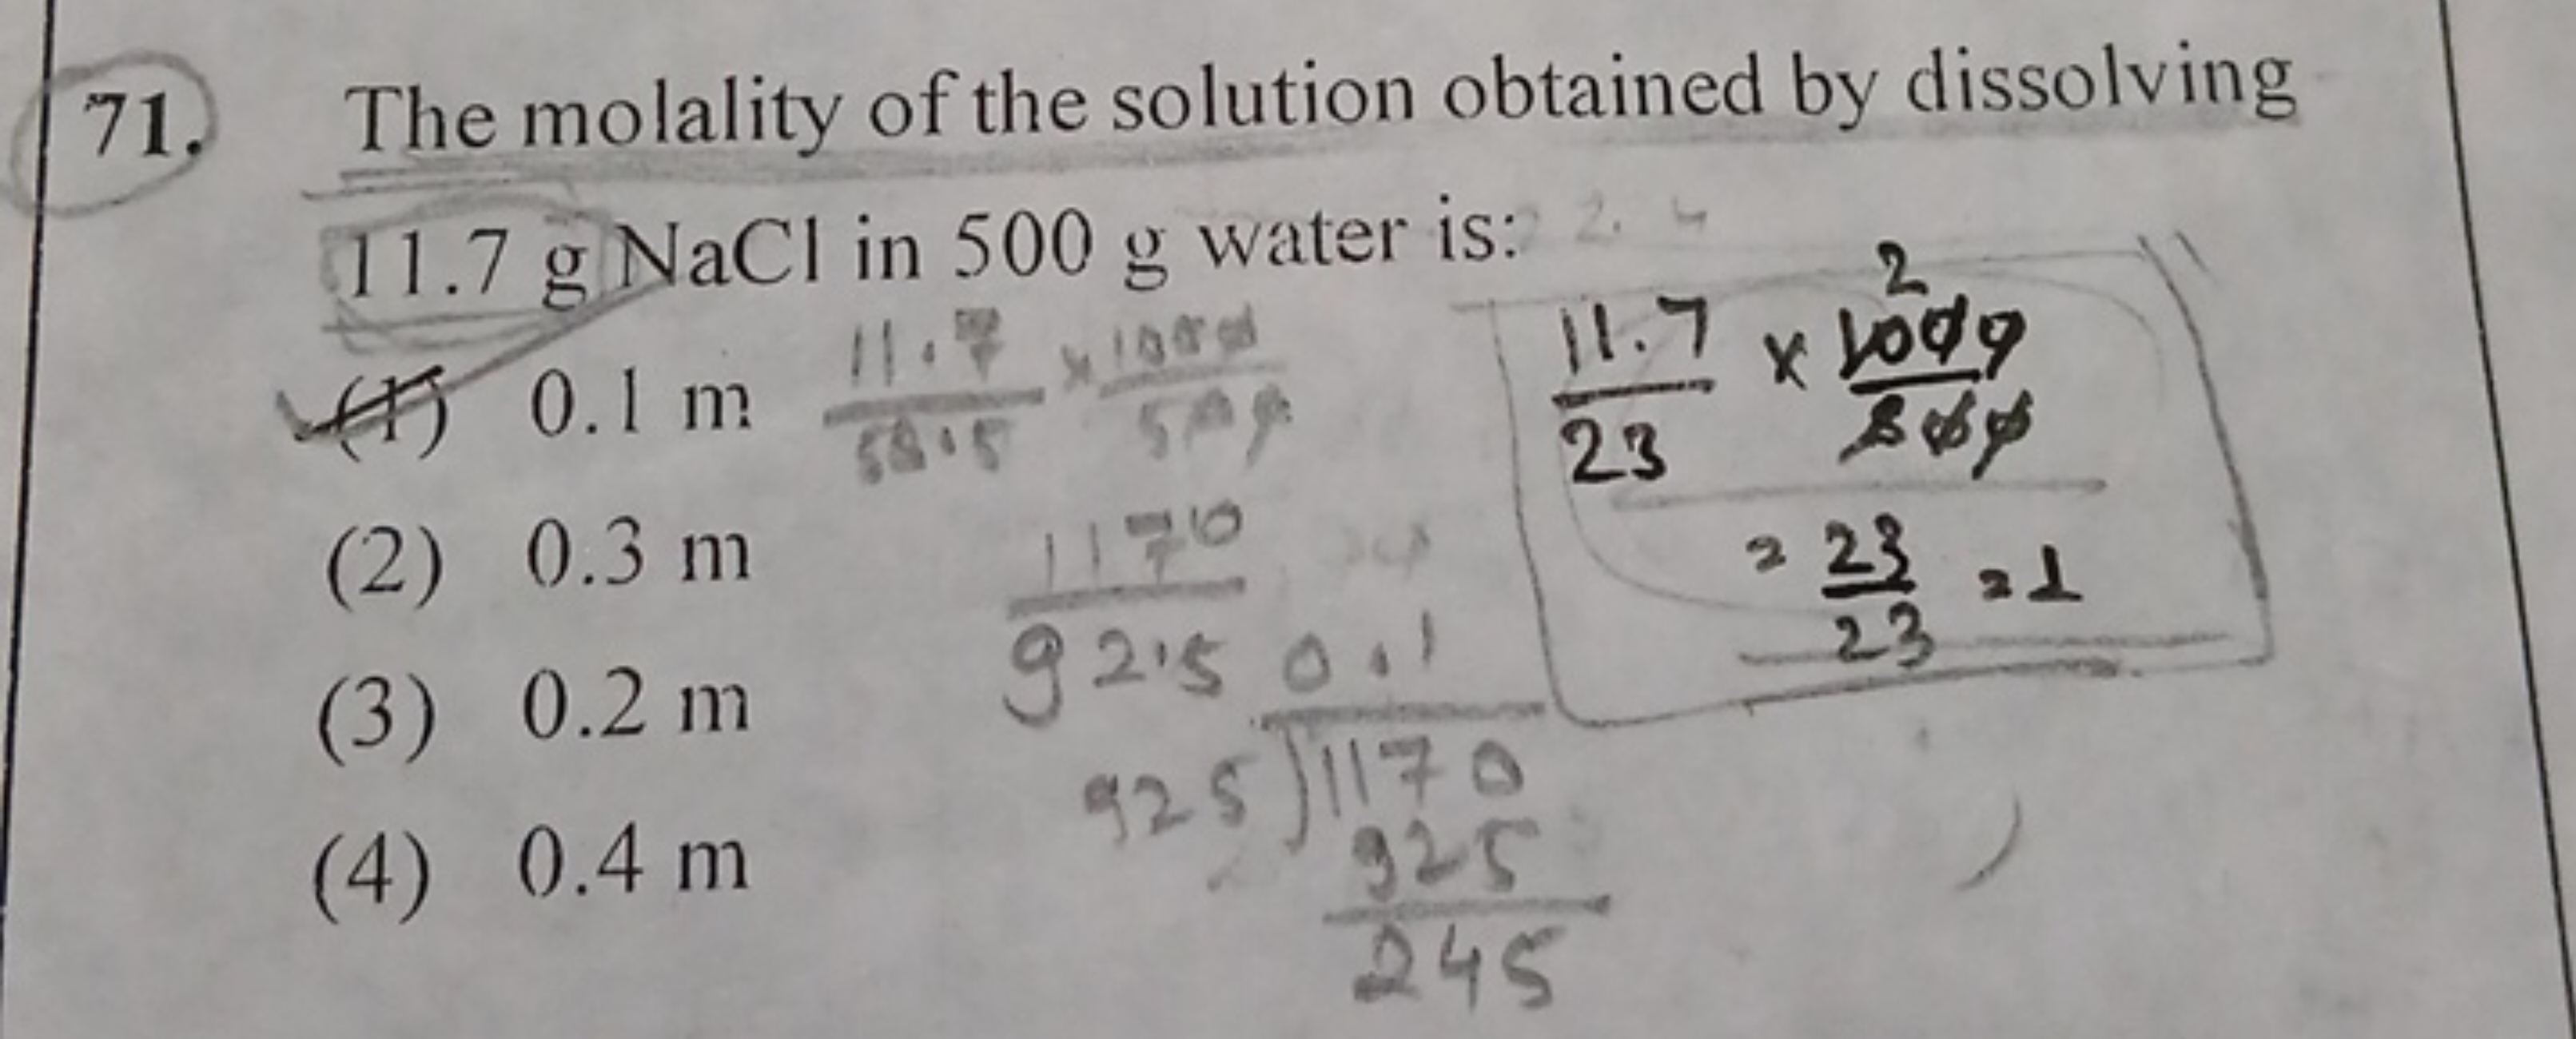 71. The molality of the solution obtained by dissolving
11.7 g NaCl in 500 g water is:
(1) 0.1 m
(2) 0.3 m
(3) 0.2 m
(4) 0.4 m
11.7/58.5 × 1000/500
1170
925
0.1
925)1170
925
245
11.7/23 × 1000/500
2
= 23/23 = 1